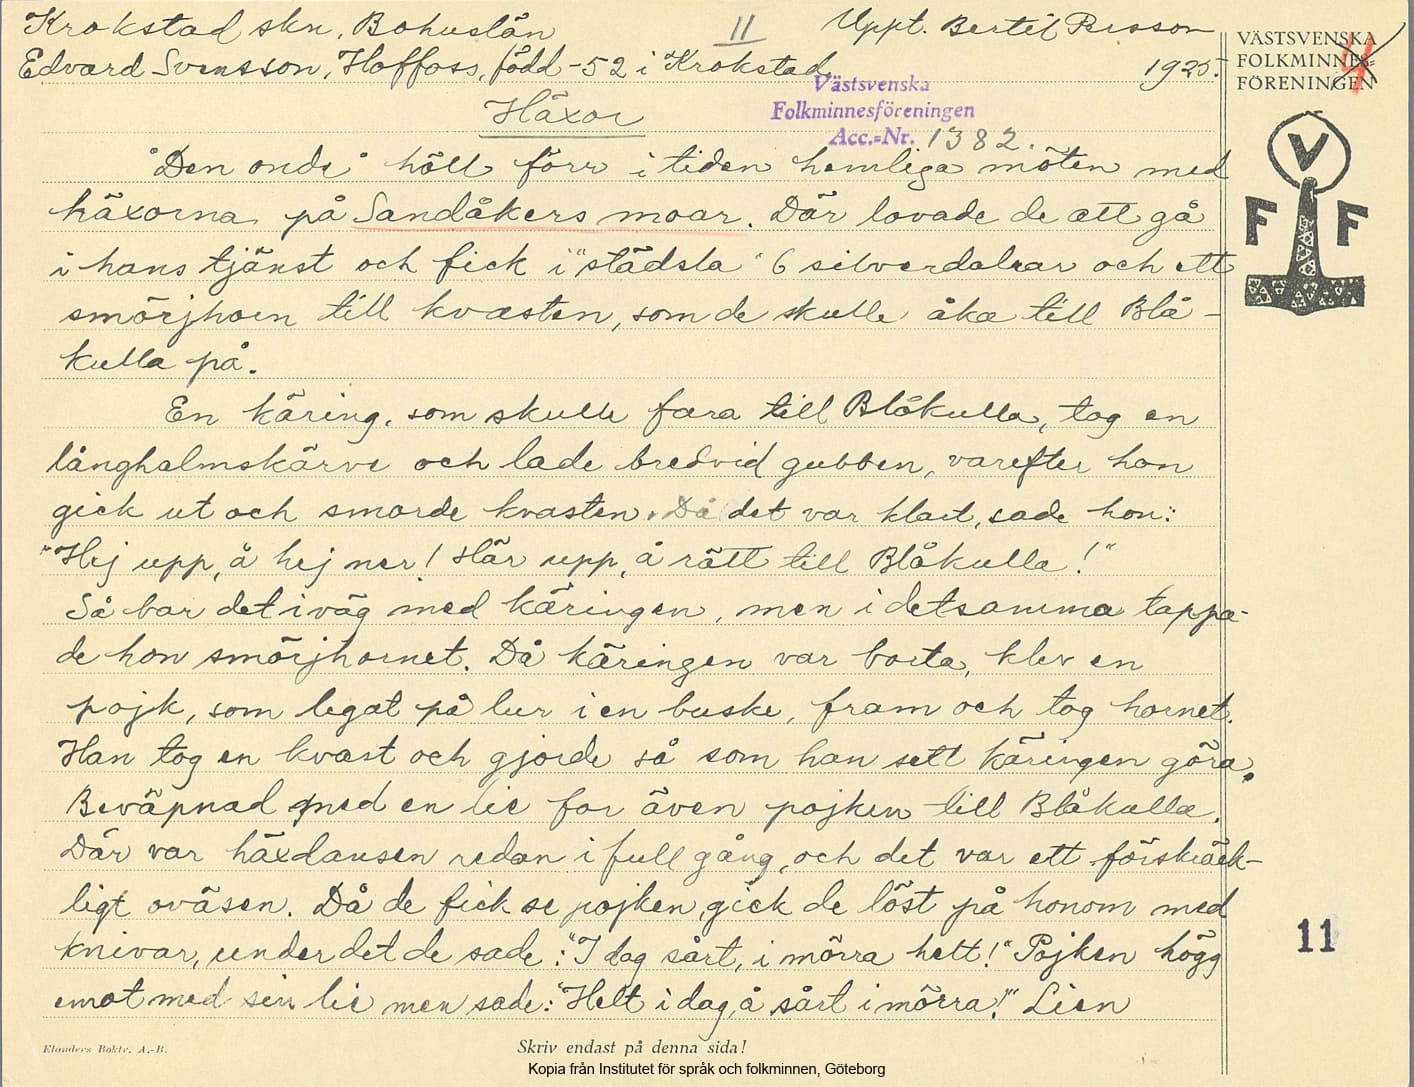 Krokstad skn, Bohuslän
II
Uppt. Bertil Persson
Edvard Svensson, Hoffoss, född -52 i Krokstad
1925.
VÄSTSVENSKA
FOLKMINNES=
FÖRENINGEN
4
Västsvenska
Folkminnesföreningen
Acc.=Nr. 1382.
Häxor
V
F F
"Den onde" höll förr i tiden hemliga möten med
häxorna på Sandåkers moar. Där lovade de att gå
i hans tjänst och fick i "städsla" 6 silverdalrar och ett
smörjhorn till kvasten, som de skulle åka till Blå-
kulla på.
En käring, som skulle fara till Blåkulla, tog en
långhalmskärve och lade bredvid gubben, varefter hon
gick ut och smorde kvasten. Då det var klart, sade hon:
"Hej upp, å hej ner! Här upp, å rätt till Blåkulla!"
Så bar det iväg med käringen, men i detsamma tappa-
de hon smörjhornet. Då käringen var borta, klev en
pojk, som legat på lur i en buske, fram och tog hornet.
Han tog en kvast och gjorde så som han sett käringen göra.
Beväpnad med en lie for även pojken till Blåkulla.
Där var häxdansen redan i full gång, och det var ett förskräck-
ligt oväsen. Då de fick se pojken, gick de löst på honom med
knivar, under det de sade: "I dag sårt, i mörra helt!" Pojken högg
emot med sin lie men sade: "Helt i dag, å sårt i mörra!" Lien
11
Elanders Boktr. A.-B.
Skriv endast på denna sida!
Kopia från Institutet för språk och folkminnen, Göteborg